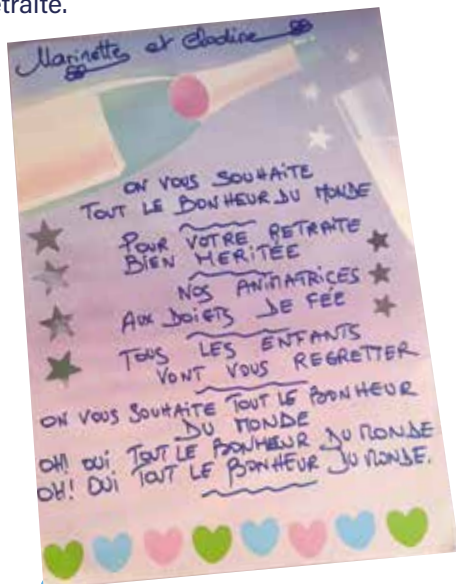 etraite.
Marinette et Clodine
ON VOUS SOUHAITE
TOUT LE BONHEUR DU MONDE
POUR VOTRE RETRAITE
BIEN MERITÉE
NOS ANIMATRICES
AUX DOIGTS DE FÉE
TOUS LES ENFANTS
VONT VOUS REGRETTER
ON VOUS SOUHAITE TOUT LE BONHEUR
DU MONDE
OH! OUI TOUT LE BONHEUR DU MONDE
OH! OUI TOUT LE BONHEUR DU MONDE.